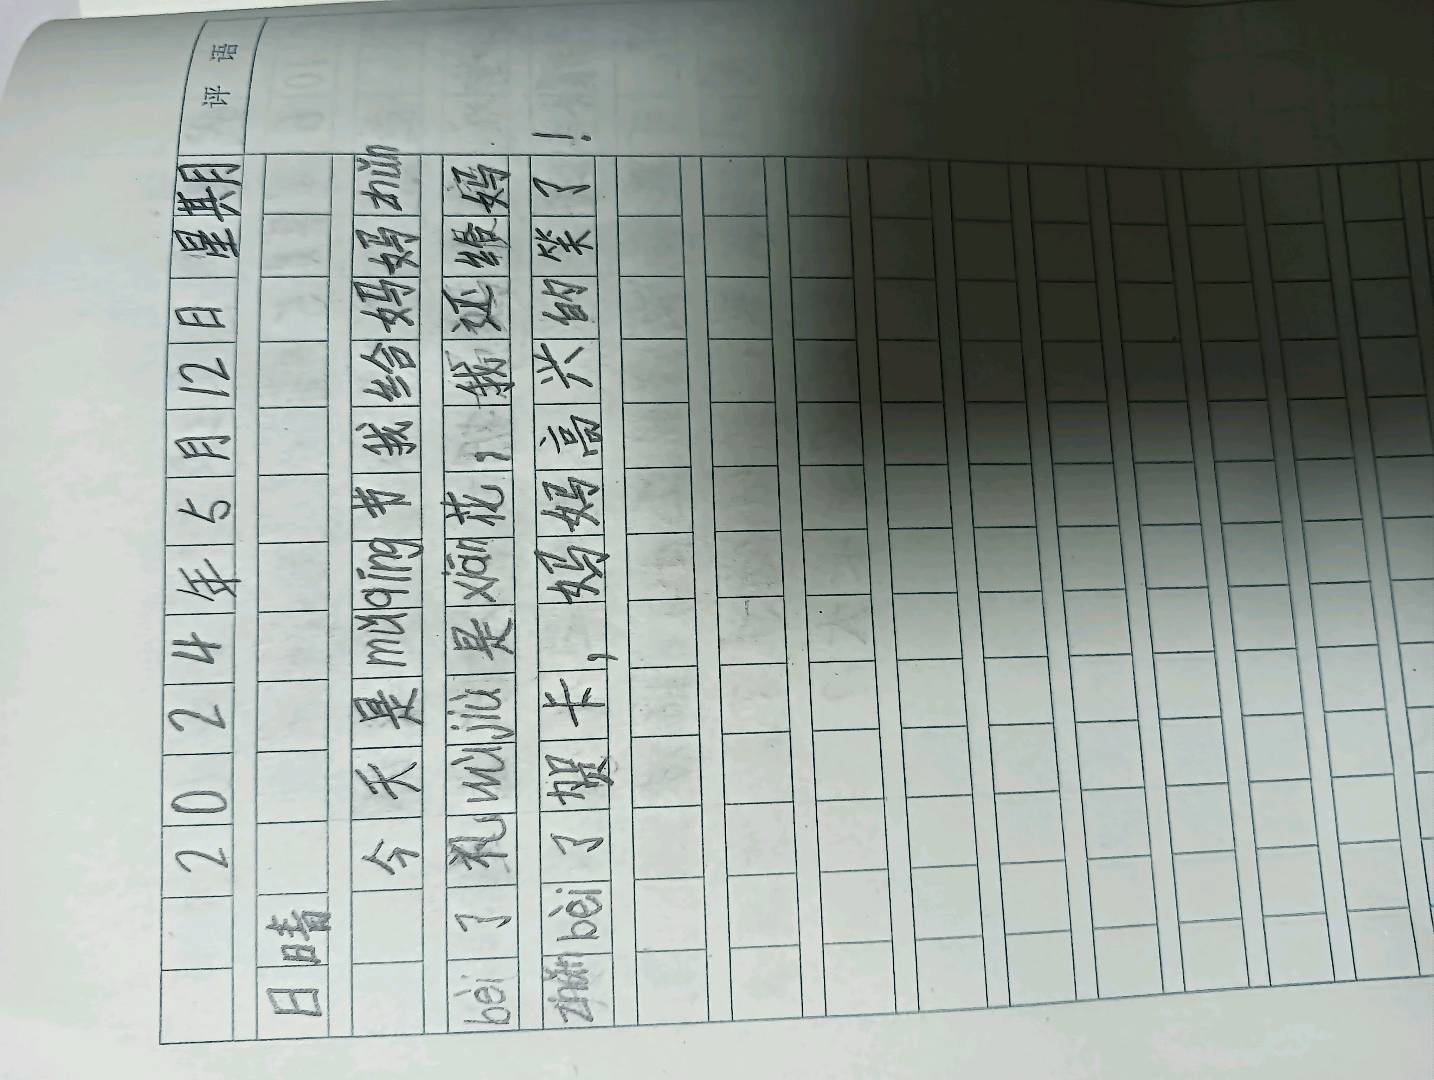 评语
2024年5月12日 星期
日晴
今天是mǔqīng节我给妈妈zhǔn
bèi了礼wùjiù是xiān花，我还给妈
zhǔnbèi了贺卡，妈妈高兴的笑了！